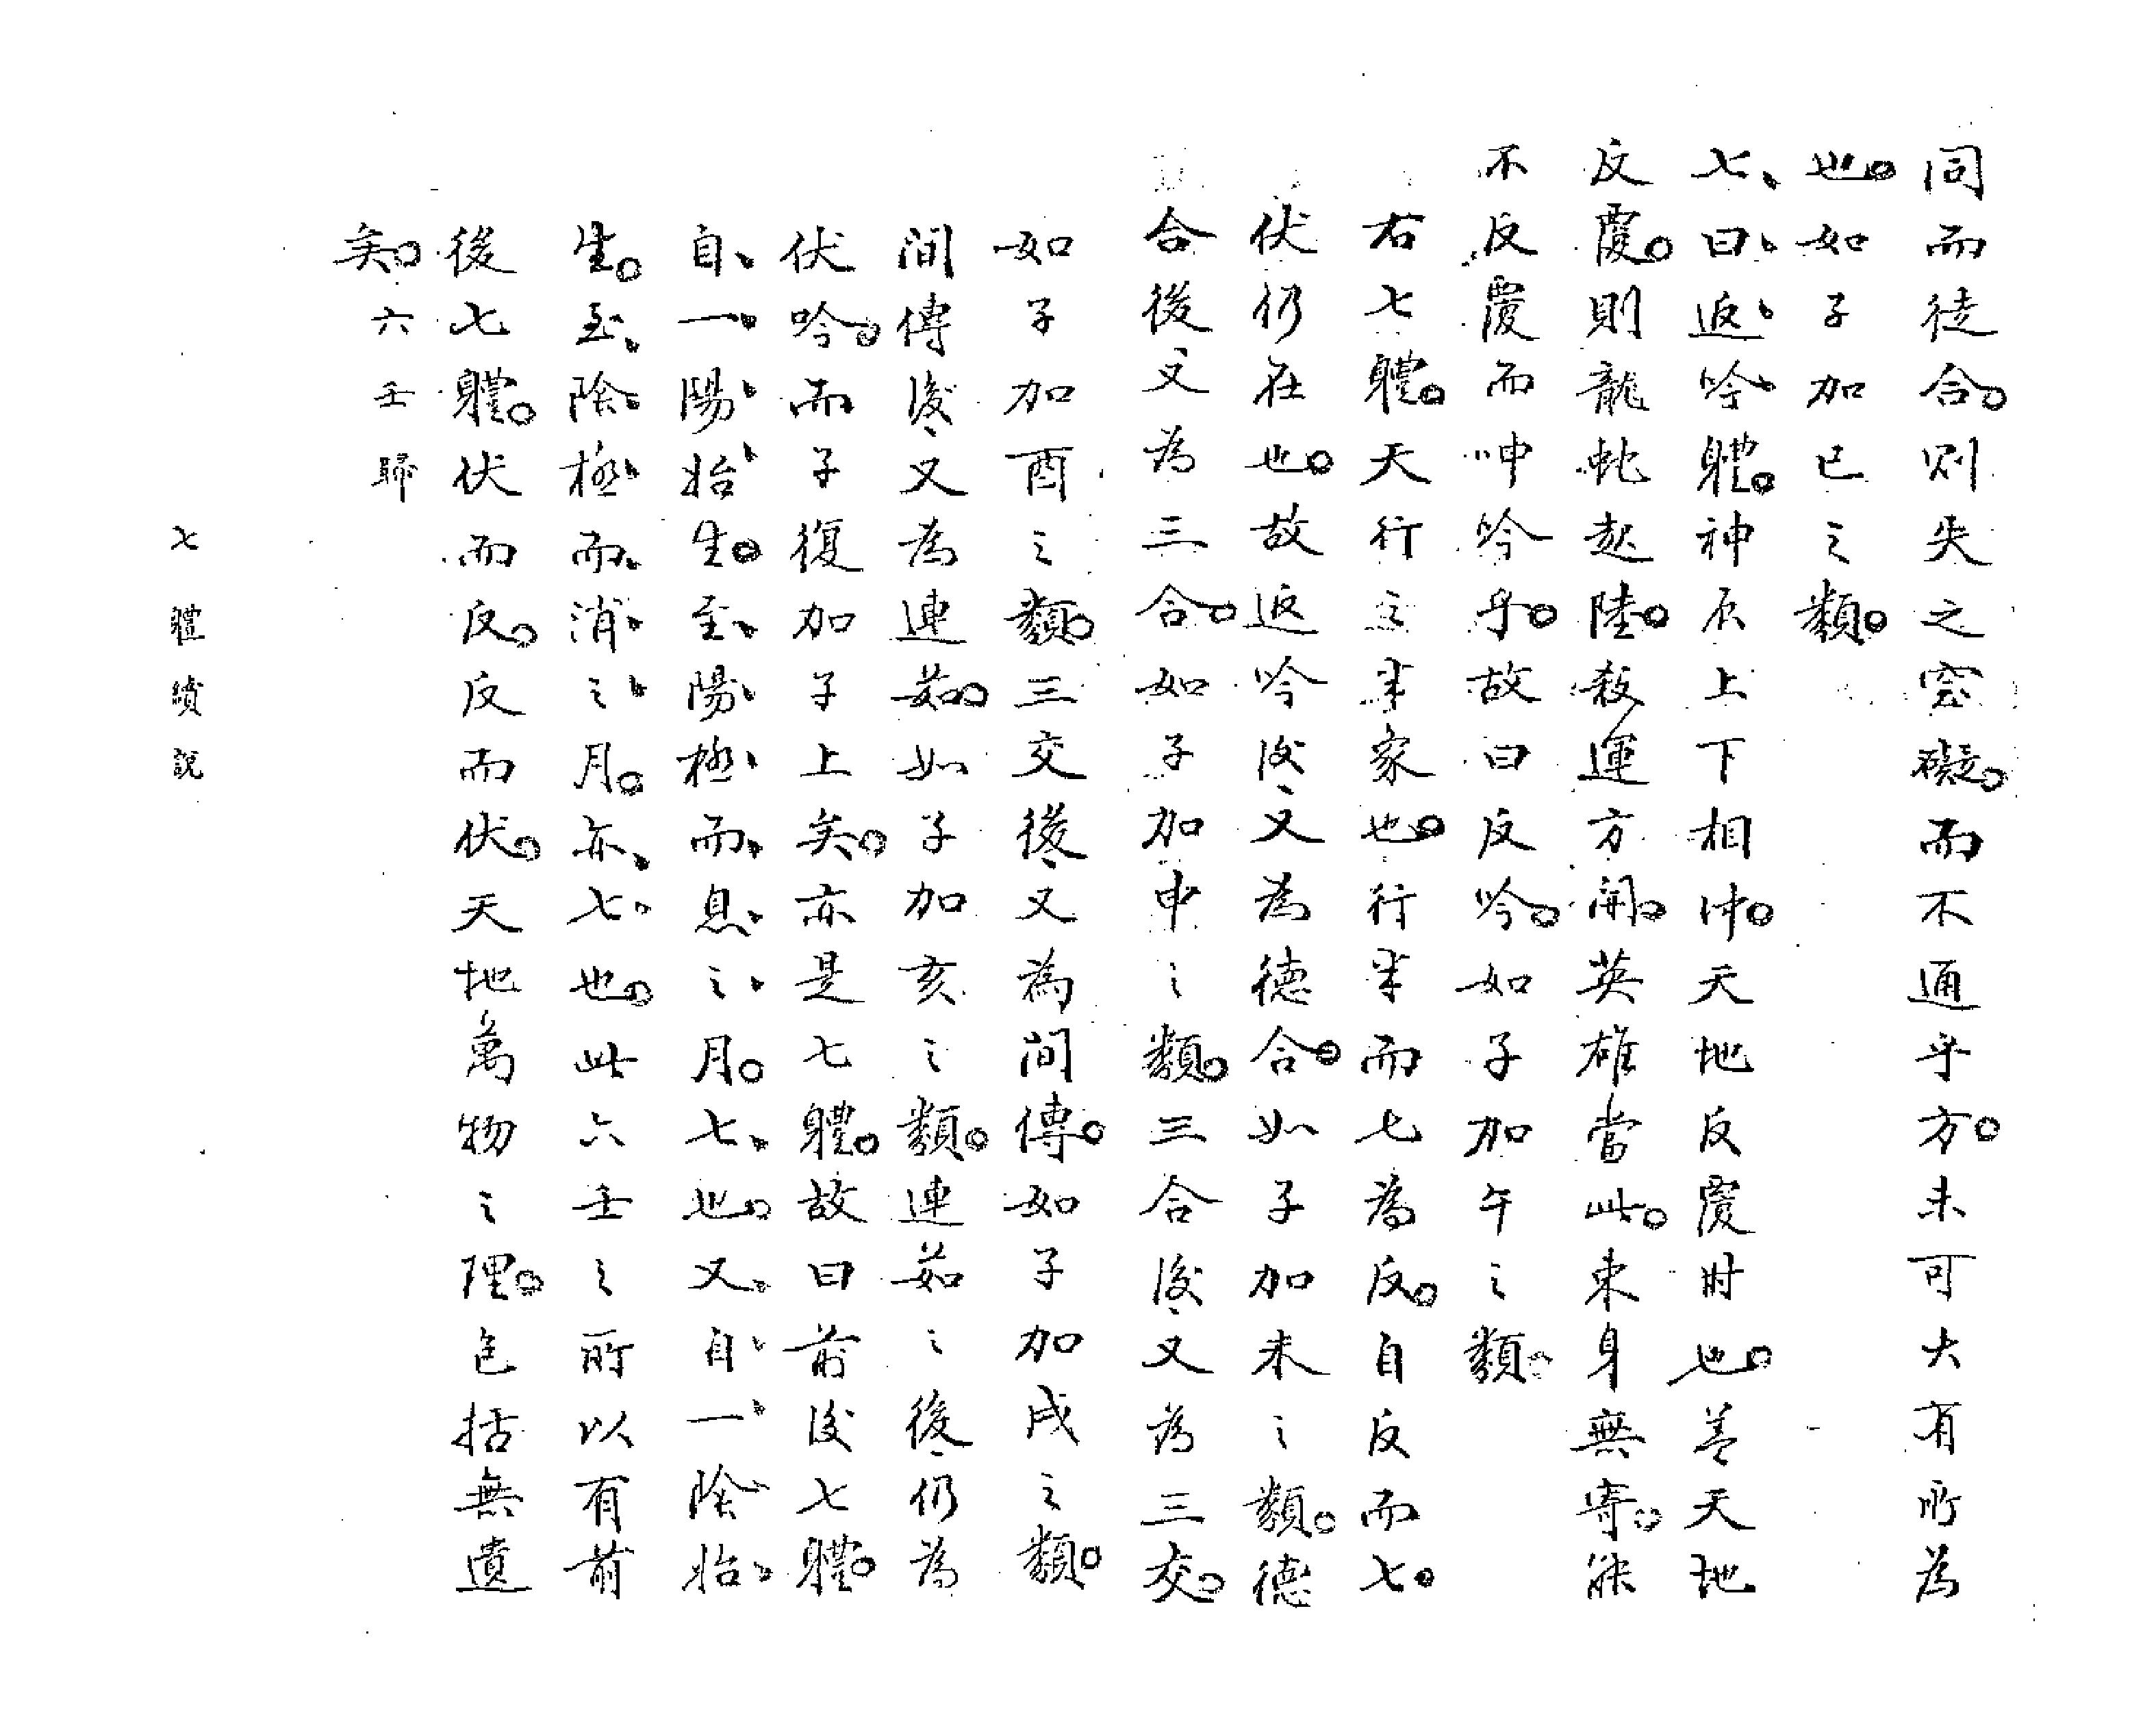 同而徒合。則失之窒礙。而不通乎方。未可大有所為
也。如子加巳之類。
七、曰、返、吟、體。神辰上下相沖。天地反覆时也。蓋天地
反覆。則龍蛇起陸。殺運方開。英雄當此。束身無寄。能
不反覆而呻吟乎。故曰反吟。如子加午之類。
右七體。天行之半家也。行半而七為反。自反而七。
伏仍在也。故返吟後又為德合。如子加未之類。德
合後又為三合。如子加申之類。三合後又為三交。
如子加酉之類。三交後又為間傳。如子加戌之類。
間傳後又為連茹。如子加亥之類。連茹之後仍為
伏吟。而子復加子上矣。亦是七體。故曰前後七體。
自、一、陽、始、生。至、陽、極、而、息、之、月。七、也。又、自、一、陰、始、
生。至、陰、極、而、消、之、月。亦、七、也。此六壬之所以有前
後七體。伏而反。反而伏。天地萬物之理。包括無遺
矣。六壬歸
七體績說